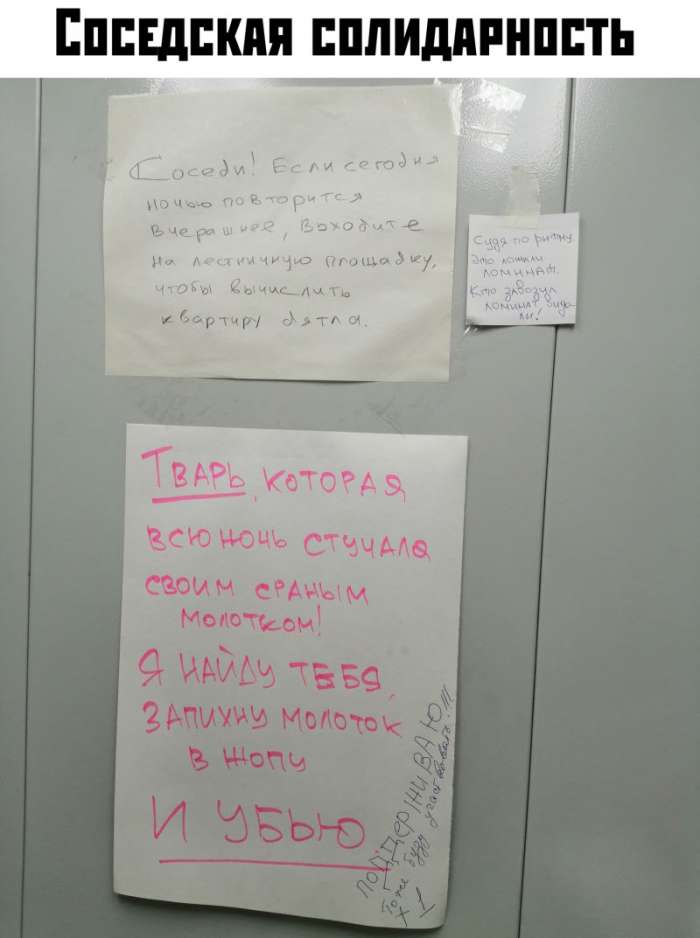 Соседская солидарность
Соседи! Если сегодня
ночью повторится
вчерашнее, выходите
на лестничную площадку,
чтобы вычислить
квартиру дятла.
Судя по ритму,
это ложили
ломинат.
Кто завозил
ломинат, вида
ли!
Тварь, которая
всю ночь стучала
своим сраным
молотком!
Я найду тебя,
запихну молоток
в жопу
и убью
ПОДДЕРЖИВАЮ!!!
Тоже буду участвовать!
х 1